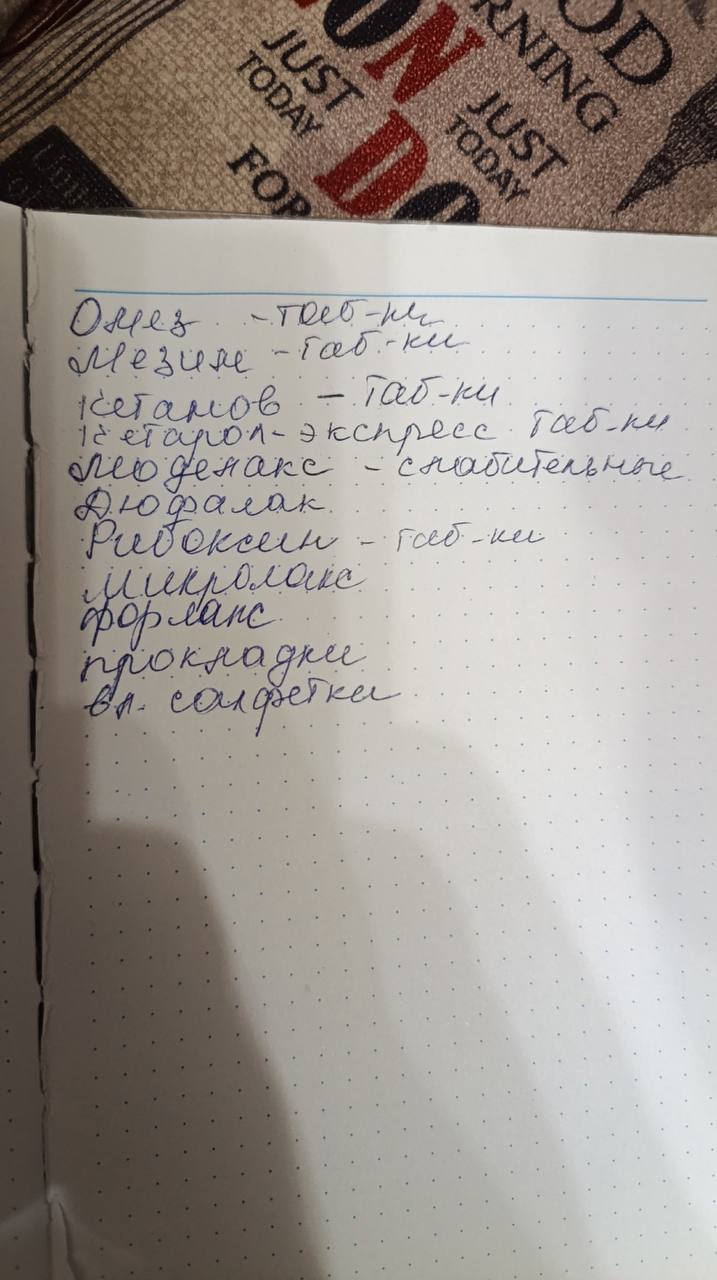 ON
OD
RNING
JUST
TODAY
JUST
TODAY
FOR
DO
Омез - таб-ки
Мезим - таб-ки
Кетанов - таб-ки
Кетарол - экспресс таб-ки
Моделакс - слабительные
Дюфалак
Рибоксин - таб-ки
микролакс
форлакс
прокладки
вл. салфетки